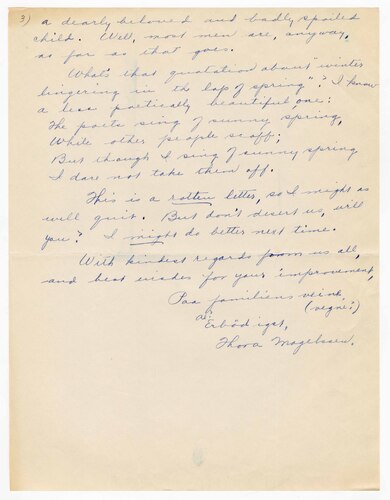 3) a dearly beloved and badly spoiled
child. Well, most men are, anyway,
as far as that goes.
What's that quotation about "winter
lingering in the lap of spring"? I know
a less poetically beautiful one:
The poets sing of sunny spring,
While other people scoff;
But though I sing of sunny spring
I dare not take them off.
This is a rotten letter, so I might as
well quit. But don't desert us, will
you? I might do better next time.
With kindest regards from us all,
and best wishes for your improvement,
Paa familiens veine
(vegne?)
Erbödigst,
Thora Magelssen.